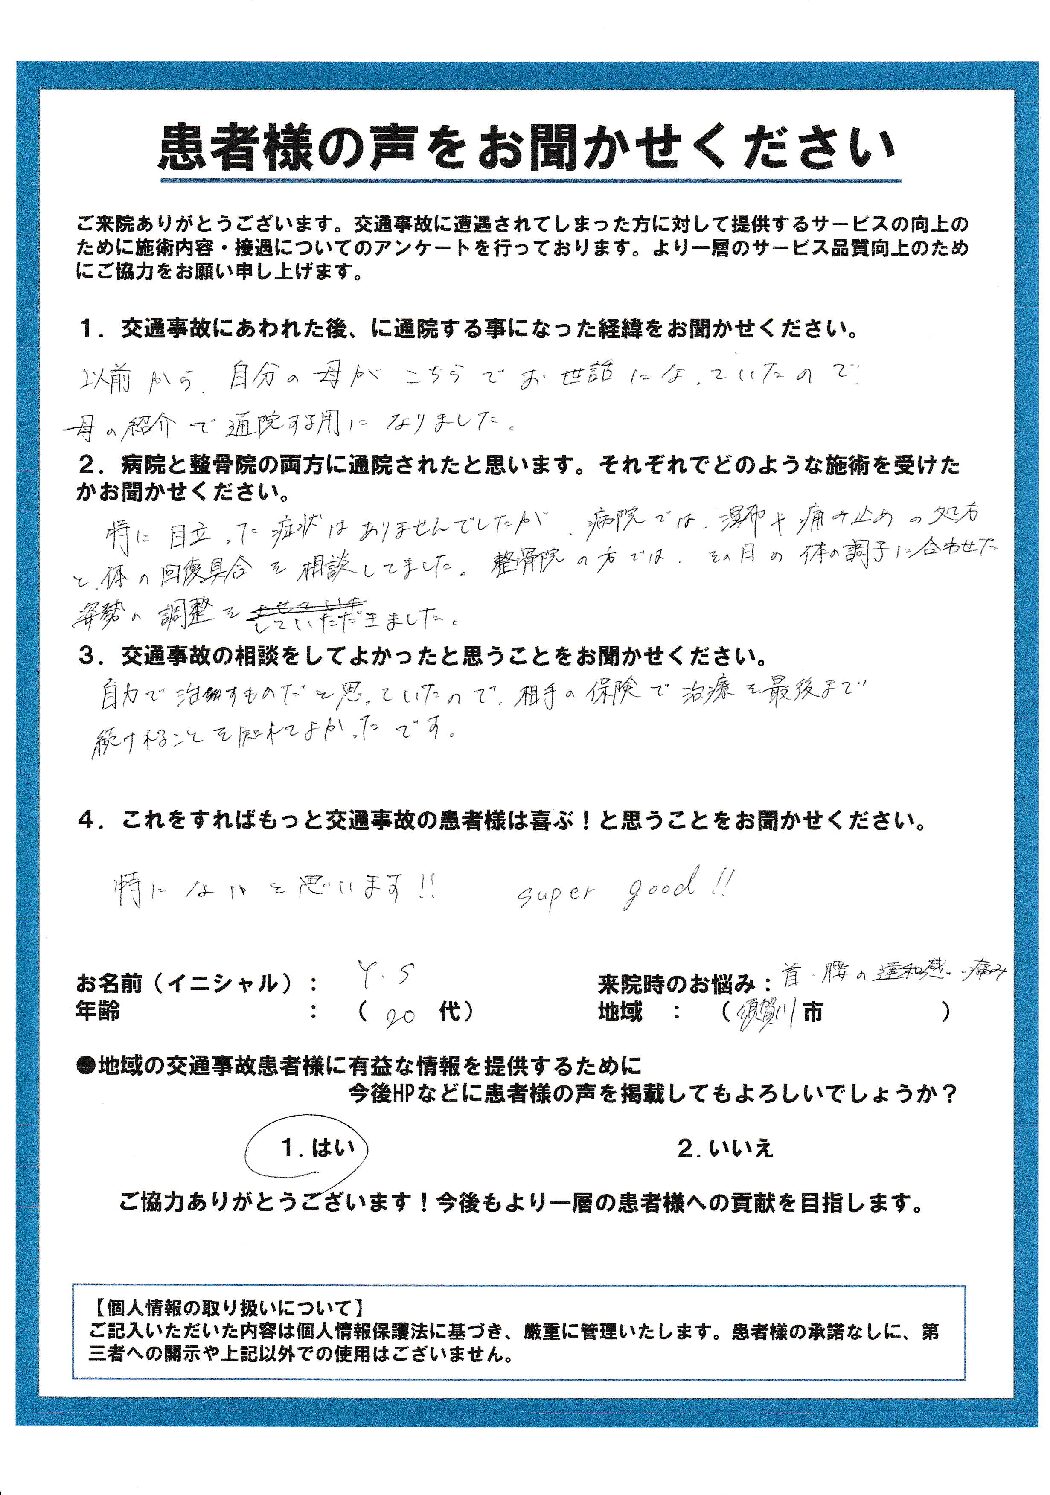 患者様の声をお聞かせください
ご来院ありがとうございます。交通事故に遭遇されてしまった方に対して提供するサービスの向上の
ために施術内容・接遇についてのアンケートを行っております。より一層のサービス品質向上のため
にご協力をお願い申し上げます。
1．交通事故にあわれた後、に通院する事になった経緯をお聞かせください。
以前から、自分の母がこちらでお世話になっていたので、
母の紹介で通院する用になりました。
2．病院と整骨院の両方に通院されたと思います。それぞれでどのような施術を受けた
かお聞かせください。
特に目立った症状はありませんでしたが、病院では、湿布や痛み止めの処方
と、体の回復具合を相談してました。整骨院の方では、その日の体の調子に合わせた
姿勢の調整をしていただきました。
3．交通事故の相談をしてよかったと思うことをお聞かせください。
自力で治すものだと思っていたので、相手の保険で治療を最後まで
続けれることを知れてよかったです。
4．これをすればもっと交通事故の患者様は喜ぶ！と思うことをお聞かせください。
特にないと思います!! super good!!
お名前（イニシャル）： Y.S 来院時のお悩み：首・腰の違和感・痛み
年齢 ：（ 20 代） 地域 ：（須賀川市 ）
●地域の交通事故患者様に有益な情報を提供するために
今後HPなどに患者様の声を掲載してもよろしいでしょうか？
1.はい 2.いいえ
ご協力ありがとうございます！今後もより一層の患者様への貢献を目指します。
【個人情報の取り扱いについて】
ご記入いただいた内容は個人情報保護法に基づき、厳重に管理いたします。患者様の承諾なしに、第
三者への開示や上記以外での使用はございません。